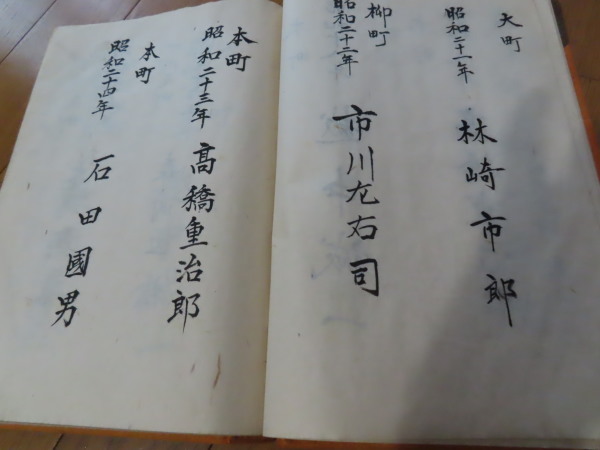 大町
昭和二十一年
林崎市郎
柳町
昭和二十二年
市川左右司
本町
昭和二十三年
髙橋重治郎
本町
昭和二十四年
石田國男